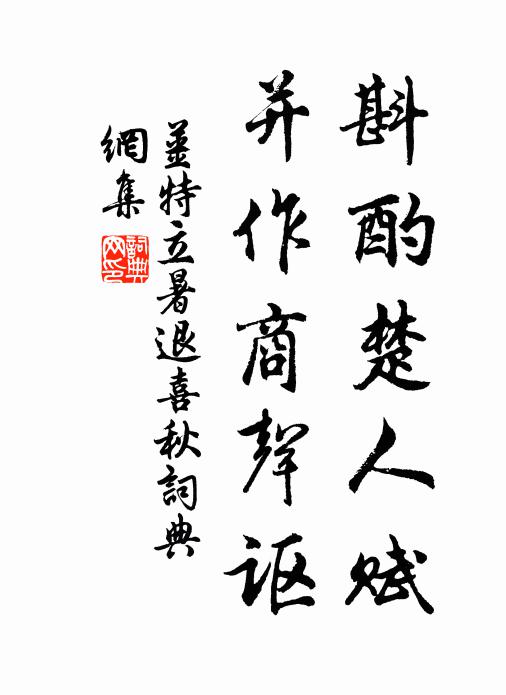 斟酌楚人赋
并作商聲讴
姜特立暑退喜秋詞典
網集
詞典
网印